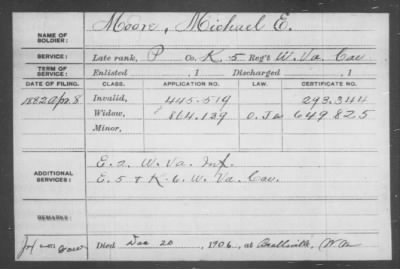 NAME OF SOLDIER: Moore, Michael E.
SERVICE: Late rank, P Co. K, 5 Reg't W. Va. Cav
TERM OF SERVICE: Enlisted , 1 Discharged , 1
DATE OF FILING. CLASS. APPLICATION NO. LAW. CERTIFICATE NO.
1882 Apr. 8 Invalid, 445.519 293.344
Widow, 864.139 649825
Minor,
ADDITIONAL SERVICES: E. 2. W. Va. Inf.
E. 5 & K. 6. W. Va. Cav.
REMARKS:
Died Dec 20, 1906, at